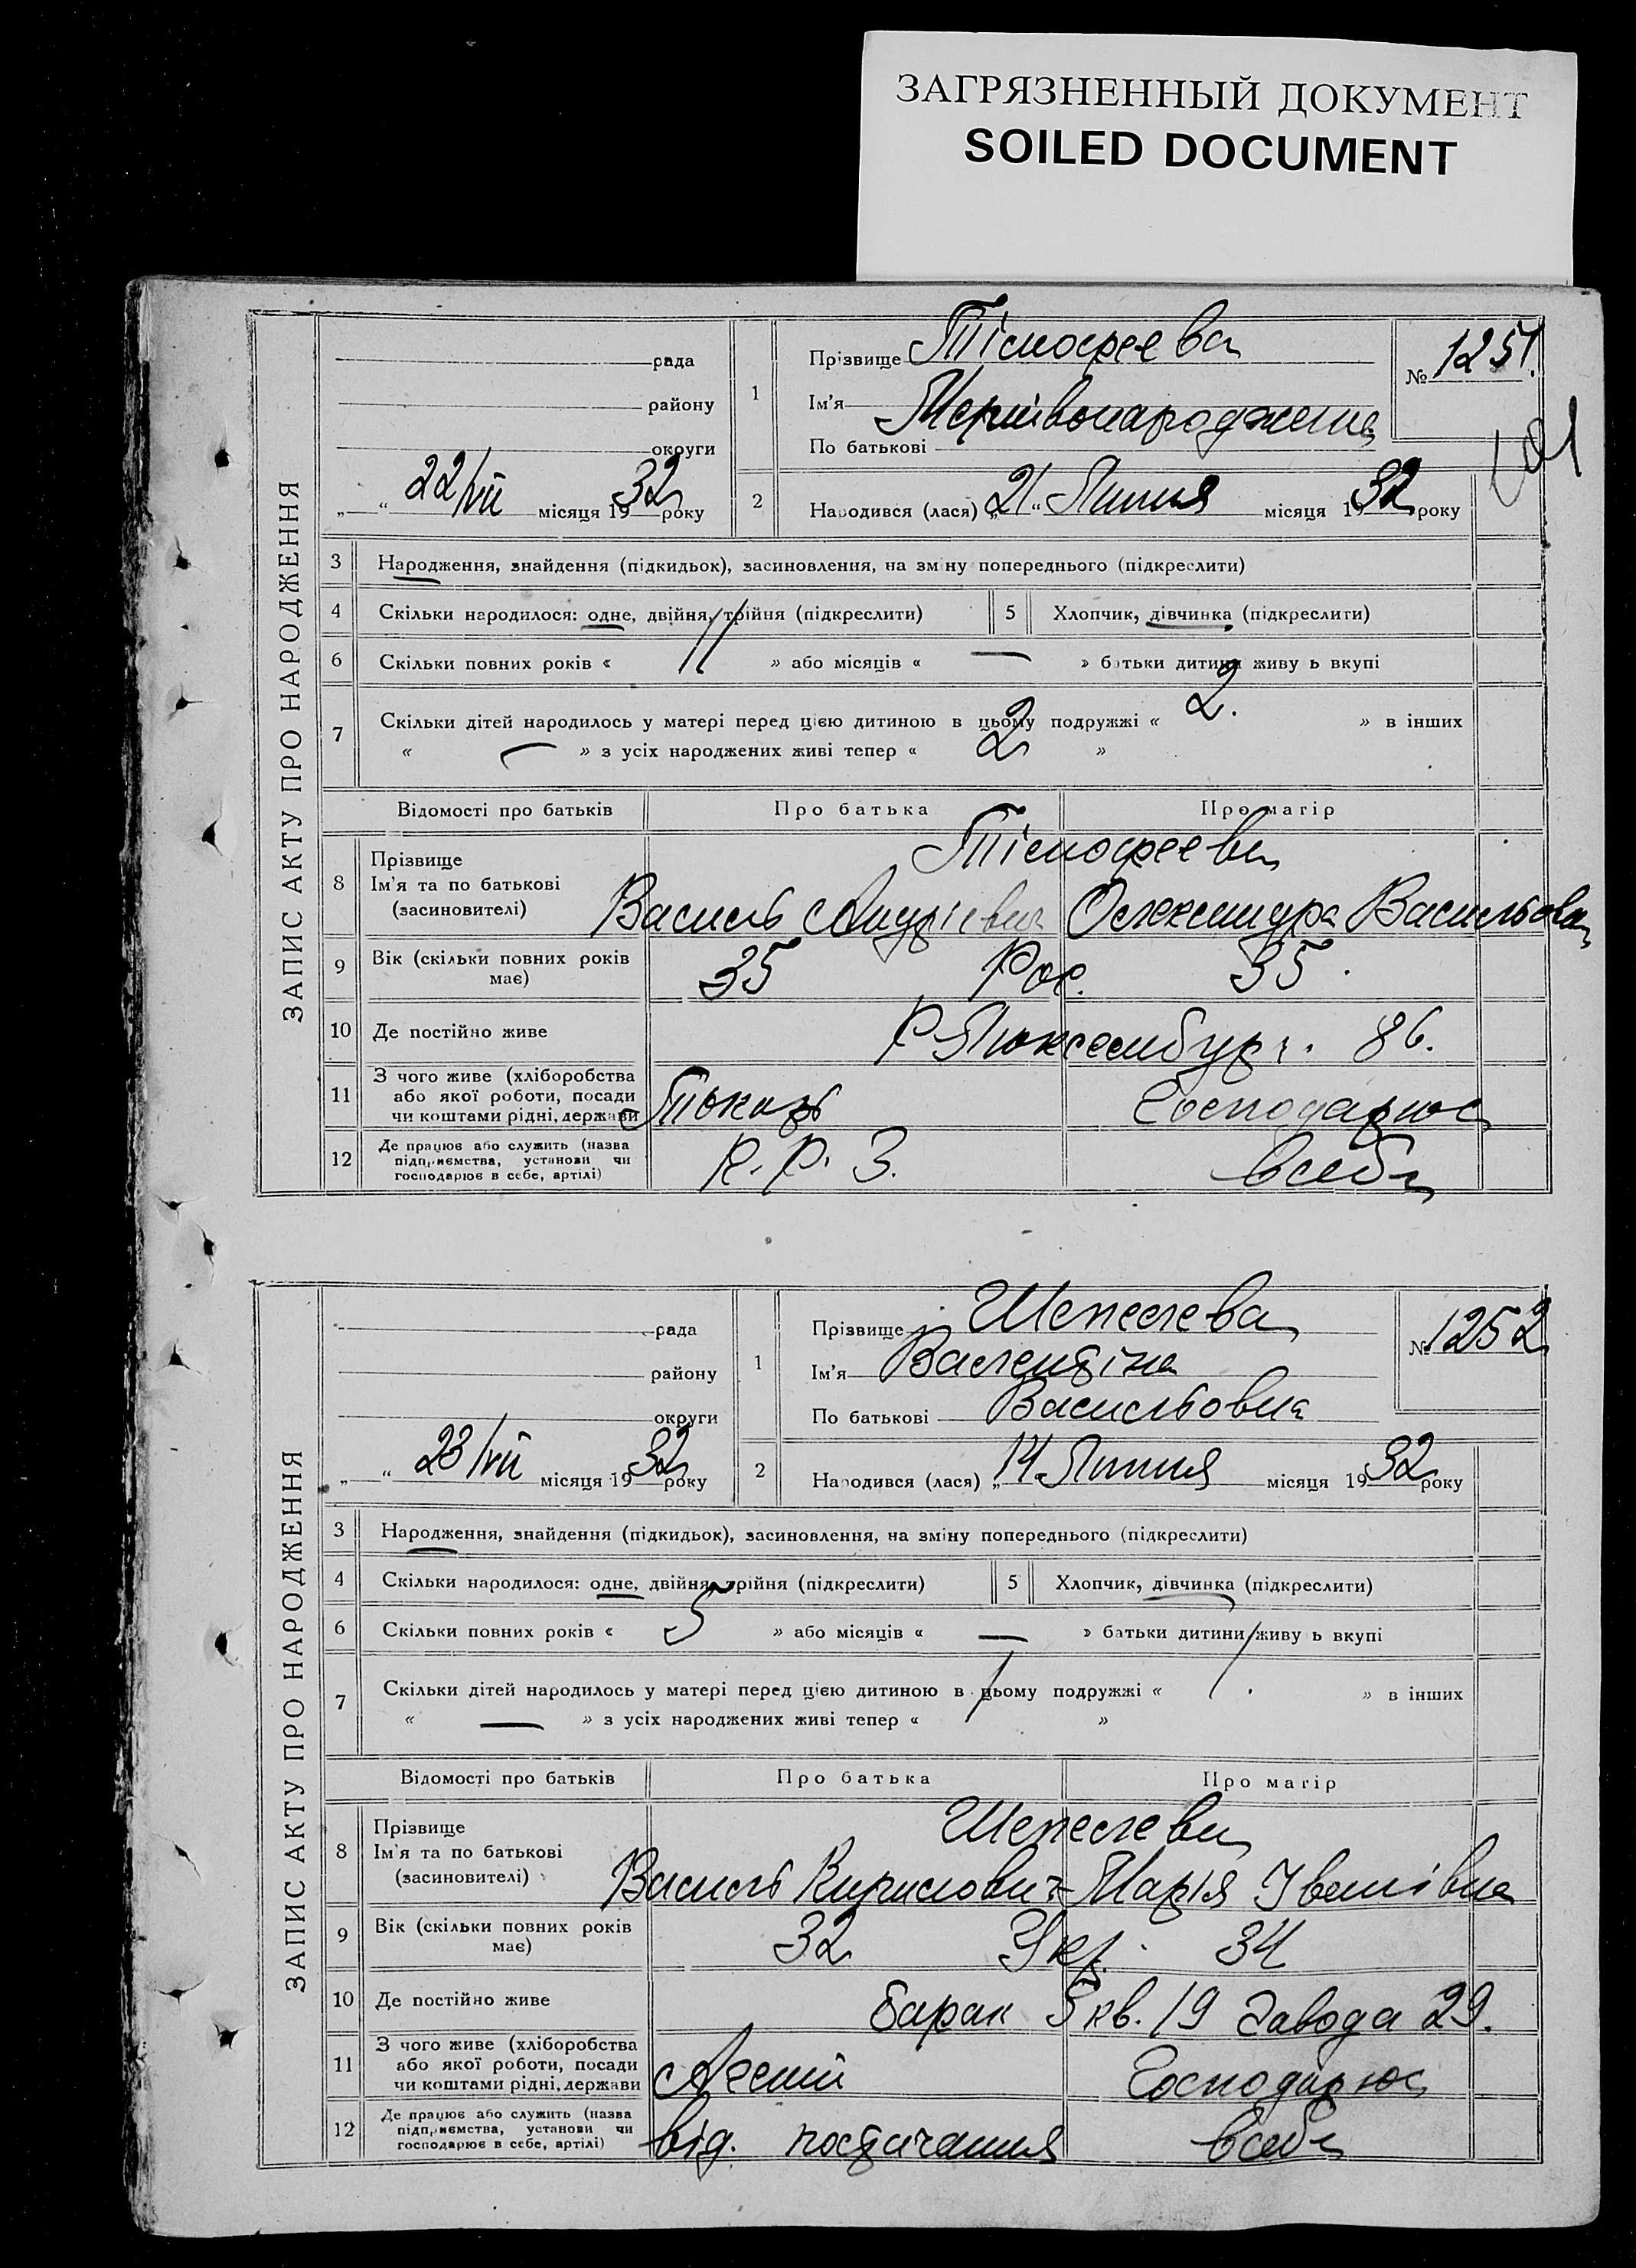 ЗАГРЯЗНЕННЫЙ ДОКУМЕНТ
SOILED DOCUMENT
ЗАПИС АКТУ ПРО НАРОДЖЕННЯ
рада
району
округи
„ “ 22/VII місяця 1932 року
1
Прізвище Тімофеева
Ім'я Мертвонароджена
По батькові
№ 1251.
2
Народився (лася) „21“ Липня місяця 1932 року
3 Народження, знайдення (підкидьок), засиновлення, на зміну попереднього (підкреслити)
4 Скільки народилося: одне, двійня, трійня (підкреслити) 5 Хлопчик, дівчинка (підкреслити)
6 Скільки повних років « 11 » або місяців « — » батьки дитини живуть вкупі
7 Скільки дітей народилось у матері перед цією дитиною в цьому подружжі « 2. » в інших
« — » з усіх народжених живі тепер « 2 »
Відомості про батьків Про батька Про матір
8 Прізвище Тімофееви
Ім'я та по батькові
(засновителі) Василь Андрієвич Олександра Васильовна
9 Вік (скільки повних років має) 35 Рос. 35.
10 Де постійно живе Р. Люксембург. 86.
11 З чого живе (хліборобства
або якої роботи, посади
чи коштами рідні, держави Токарь Господарює
12 Де працює або служить (назва
підприємства, установи чи
господарює в себе, артілі) К. Р. З. в себе
ЗАПИС АКТУ ПРО НАРОДЖЕННЯ
рада
району
округи
„ “ 23/VII місяця 1932 року
1
Прізвище Шепелева
Ім'я Валентіна
По батькові Васильовна
№ 1252
2
Народився (лася) „14 Липня місяця 1932 року
3 Народження, знайдення (підкидьок), засиновлення, на зміну попереднього (підкреслити)
4 Скільки народилося: одне, двійня, трійня (підкреслити) 5 Хлопчик, дівчинка (підкреслити)
6 Скільки повних років « 5 » або місяців « — » батьки дитини живуть вкупі
7 Скільки дітей народилось у матері перед цією дитиною в цьому подружжі « 1. » в інших
« — » з усіх народжених живі тепер « 1 »
Відомості про батьків Про батька Про матір
8 Прізвище Шепелеви
Ім'я та по батькові
(засиновителі) Василь Кирилович Марія Іванівна
9 Вік (скільки повних років має) 32 Укр. 34
10 Де постійно живе барак 5 кв. 19 Завода 29.
11 З чого живе (хліборобства
або якої роботи, посади
чи коштами рідні, держави Агент Господарює
12 Де працює або служить (назва
підприємства, установи чи
господарює в себе, артілі) від. постачання в себе